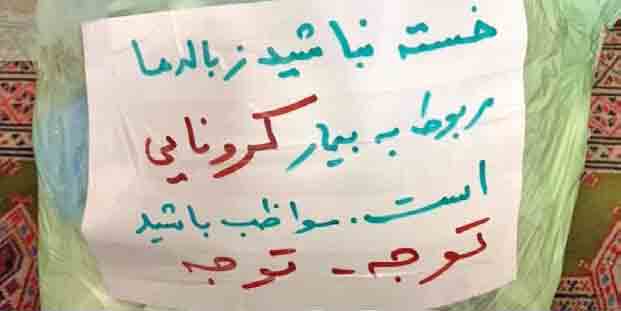 خسته نباشید زباله‌ها
مربوط به بیمار کرونایی
است. مواظب باشید
توجه - توجه